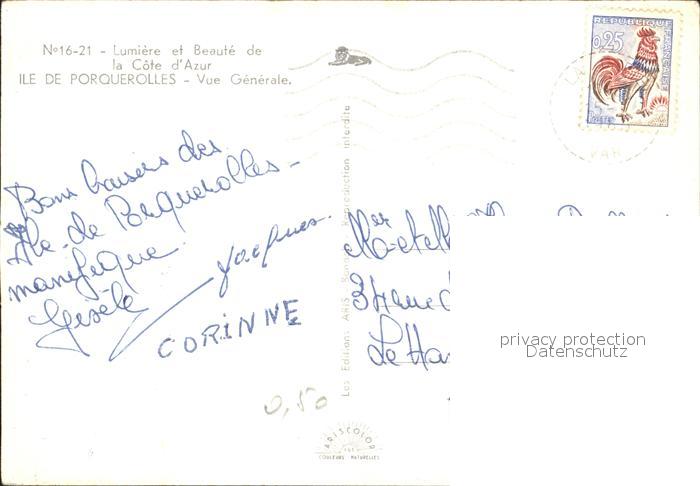 Nº16-21 - Lumière et Beauté de
la Côte d'Azur
ILE DE PORQUEROLLES - Vue Générale.
REPUBLIQUE FRANÇAISE
0,25
POSTES
VAR
Bons baisers des
Île de Porquerolles -
manifique.
Gisèle Jacques.
CORINNE
0,50
Les Editions ARIS Reproduction interdite
34 rue
Le Ha
privacy protection
Datenschutz
ARISCOLOR
COULEURS NATURELLES